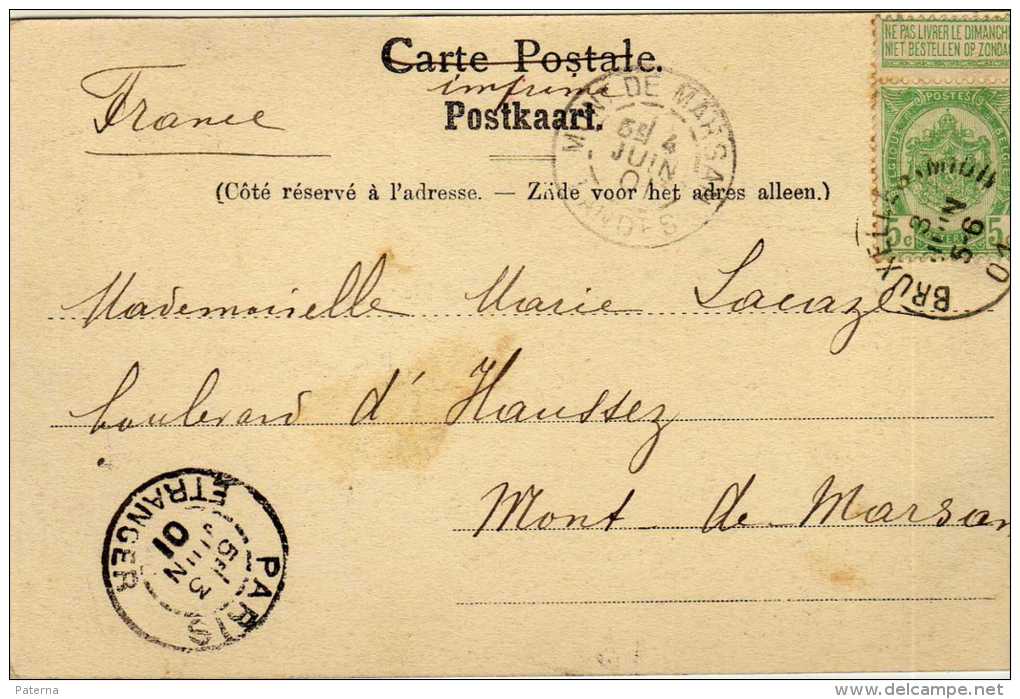 Carte Postale.
imprimé
Postkaart.
France
(Côté réservé à l'adresse. — Zijde voor het adres alleen.)
NE PAS LIVRER LE DIMANCH
NIET BESTELLEN OP ZONDA
POSTES
5c 5c
MONT DE MARSAN
4
JUIN
LANDES
BRUXELLES (MIDI)
JUIN
5-6
Mademoiselle Marie Lacaze
boulevard d'Haussez
Mont de Marsan
PARIS ETRANGER
5E 3
JUIN
01
Paterna
delcampe.net